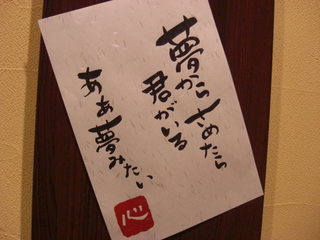 夢からさめたら
君がいる
ああ夢みたい
心